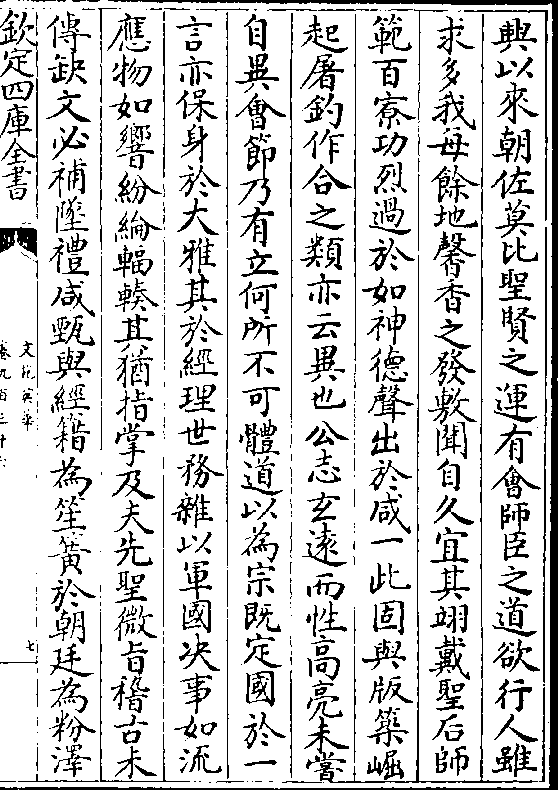 興以來朝佐莫比聖賢之運有㑹師臣之道欲行人雖
求多我毎餘地馨香之發敷聞自久宜其翊戴聖后師
範百寮功烈過於如神德聲出於咸一此固與版築崛
起屠釣作合之類亦云異也公志玄遠而性高亮未嘗
自異㑹節乃有立何所不可體道以為宗既定國於一
言亦保身於大雅其於經理世務雜以軍國决事如流
應物如響紛綸輻輳其猶指掌及夫先聖微旨稽古未
傳缺文必補墜禮咸甄與經籍為笙簧於朝廷為粉澤
欽定四庫全書
文苑英華
卷九百三十六
七